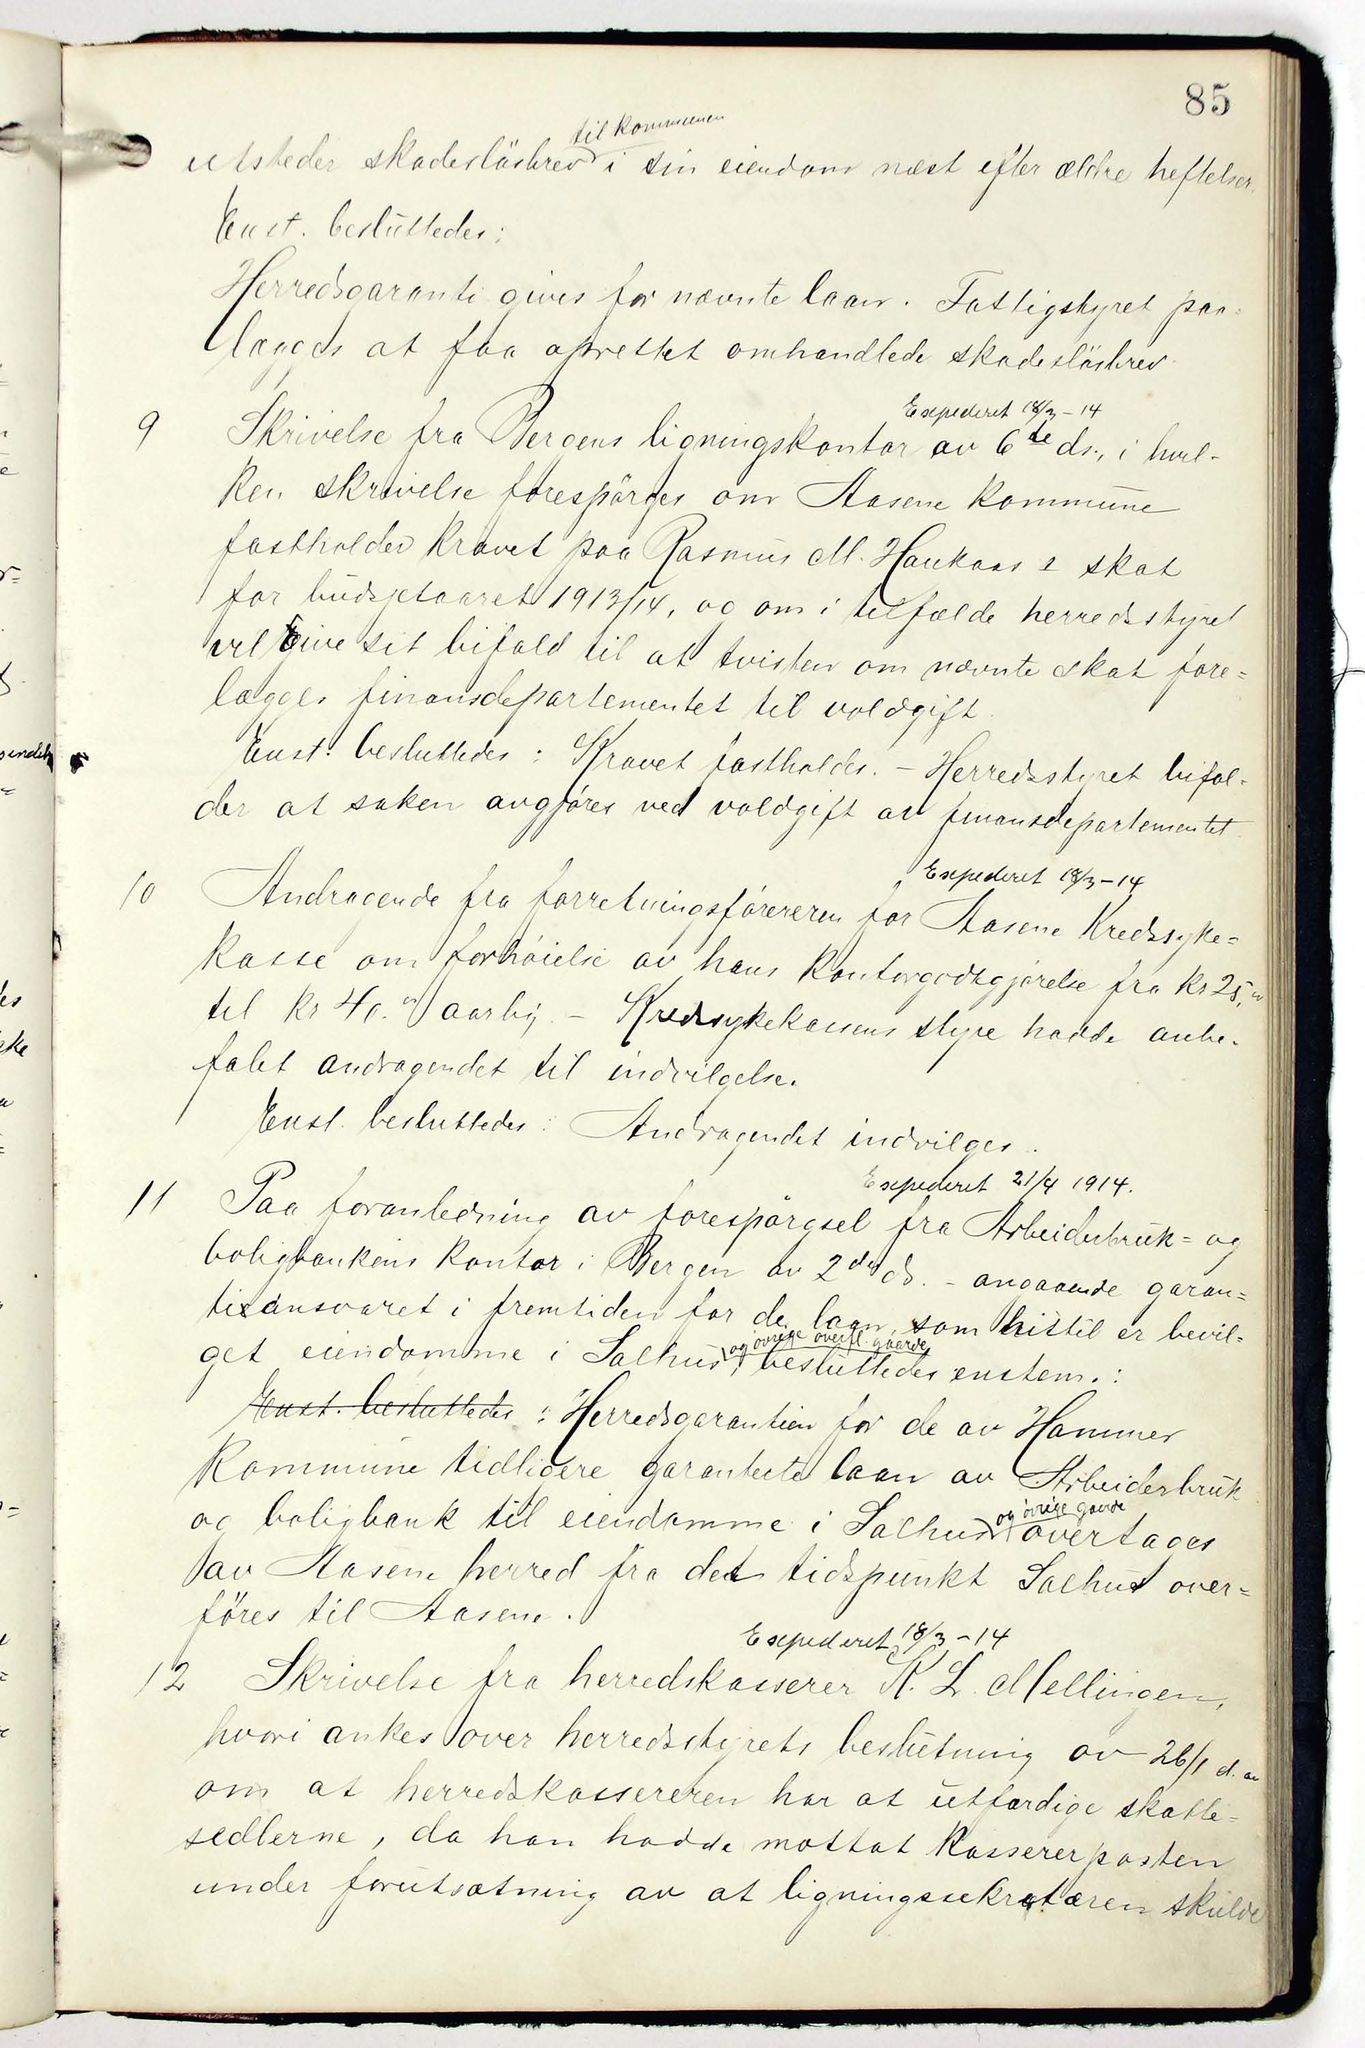 85
til kommunen
utsteder skadeslösbrev i sin eiendom næst efter ældre heftelser.
Enst. besluttedes:
Herredsgaranti gives for nævnte laan. Fattigstyret paa-
lægges at faa oprettet omhandlede skadeslösbrev.
Expederet 18/3-14
9 Skrivelse fra Bergens ligningskontor av 6te ds., i hvil-
ken skrivelse forespörges om Aasene kommune
fastholder kravet paa Rasmus M. Haukaas's skat
for budsjetaaret 1913/14, og om i tilfælde herredsstyret
vil give sit bifald til at tvisten om nævnte skat fore-
lægges finansdepartementet til voldgift.
Enst. besluttedes: Kravet fastholdes. - Herredsstyret bifal-
der at saken avgjöres ved voldgift av finansdepartementet
Expederet 18/3-14
10 Andragende fra forretningsförereren for Aasene Kredssyke-
kasse om forhöielse av hans kontorgodtgjörelse fra kr 25,00
til kr 40.00 aarlig. - Kredssykekassens styre hadde anbe-
falet andragendet til indvilgelse.
Enst. besluttedes: Andragendet indvilges.
Expederet 21/4 1914.
11 Paa foranledning av forespörgsel fra Arbeiderbruk- og
boligbankens kontor i Bergen av 2den ds. - angaaende garan-
tiansvaret i fremtiden for de laan, som hittil er bevil-
og övrige overfl. gaarde
get eiendomme i Salhus, besluttedes enstem.:
Enst. besluttedes: Herredsgarantien for de av Hammer
kommune tidligere garanterte laan av Arbeiderbruk
og övrige gaarde
og boligbank til eiendomme i Salhus overtages
av Aasene herred fra det tidspunkt Salhus over-
föres til Aasene.
Expederet 18/3-14
12 Skrivelse fra herredskasserer K. L. Mellingen,
hvori ankes over herredsstyrets beslutning av 26/1 d. aa
om at herredskassereren har at utfærdige skatte-
sedlerne, da han hadde mottat kassererposten
under forutsætning av at ligningssekretæren skulde